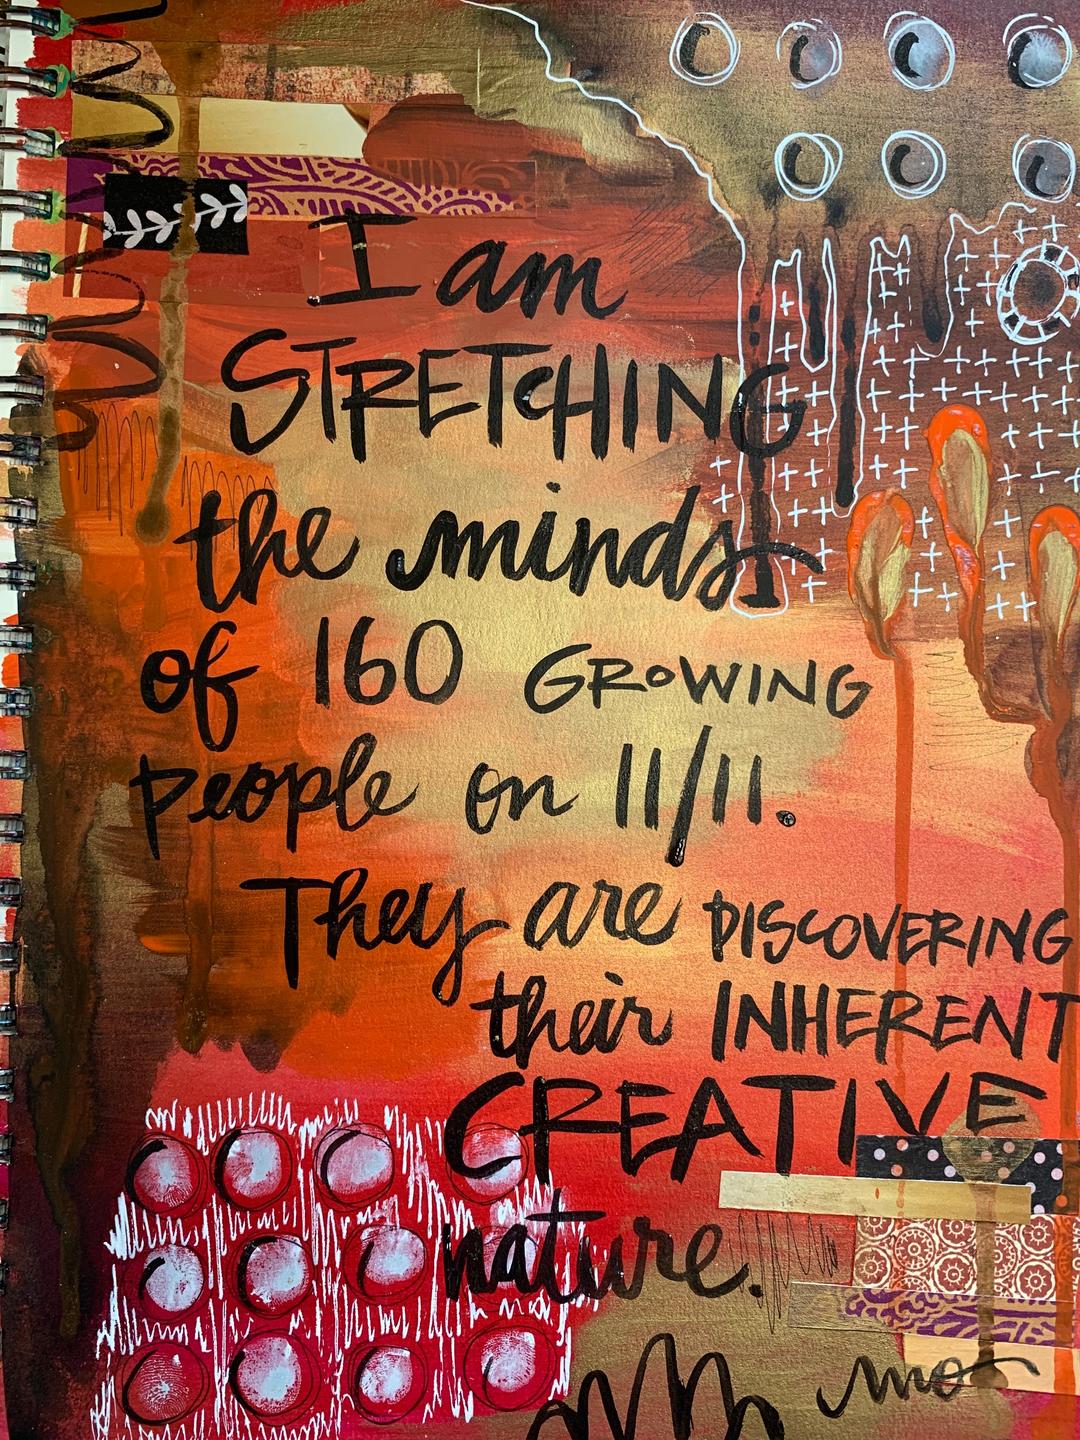 I am
STRETCHING
the minds
of 160 GROWING
people on 11/11.
They are DISCOVERING
their INHERENT
CREATIVE
nature.
mo